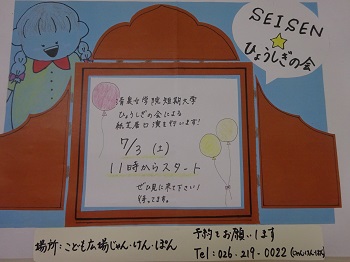 SEISEN
☆
ひょうしぎの会
清泉女学院短期大学
ひょうしぎの会による
紙芝居口演を行います!
7/3 (土)
11時からスタート
ぜひ見に来て下さい!
待ってます。
場所:こども広場じゃん・けん・ぽん
予約をお願いします
Tel:026-219-0022(じゃんけんぽん)